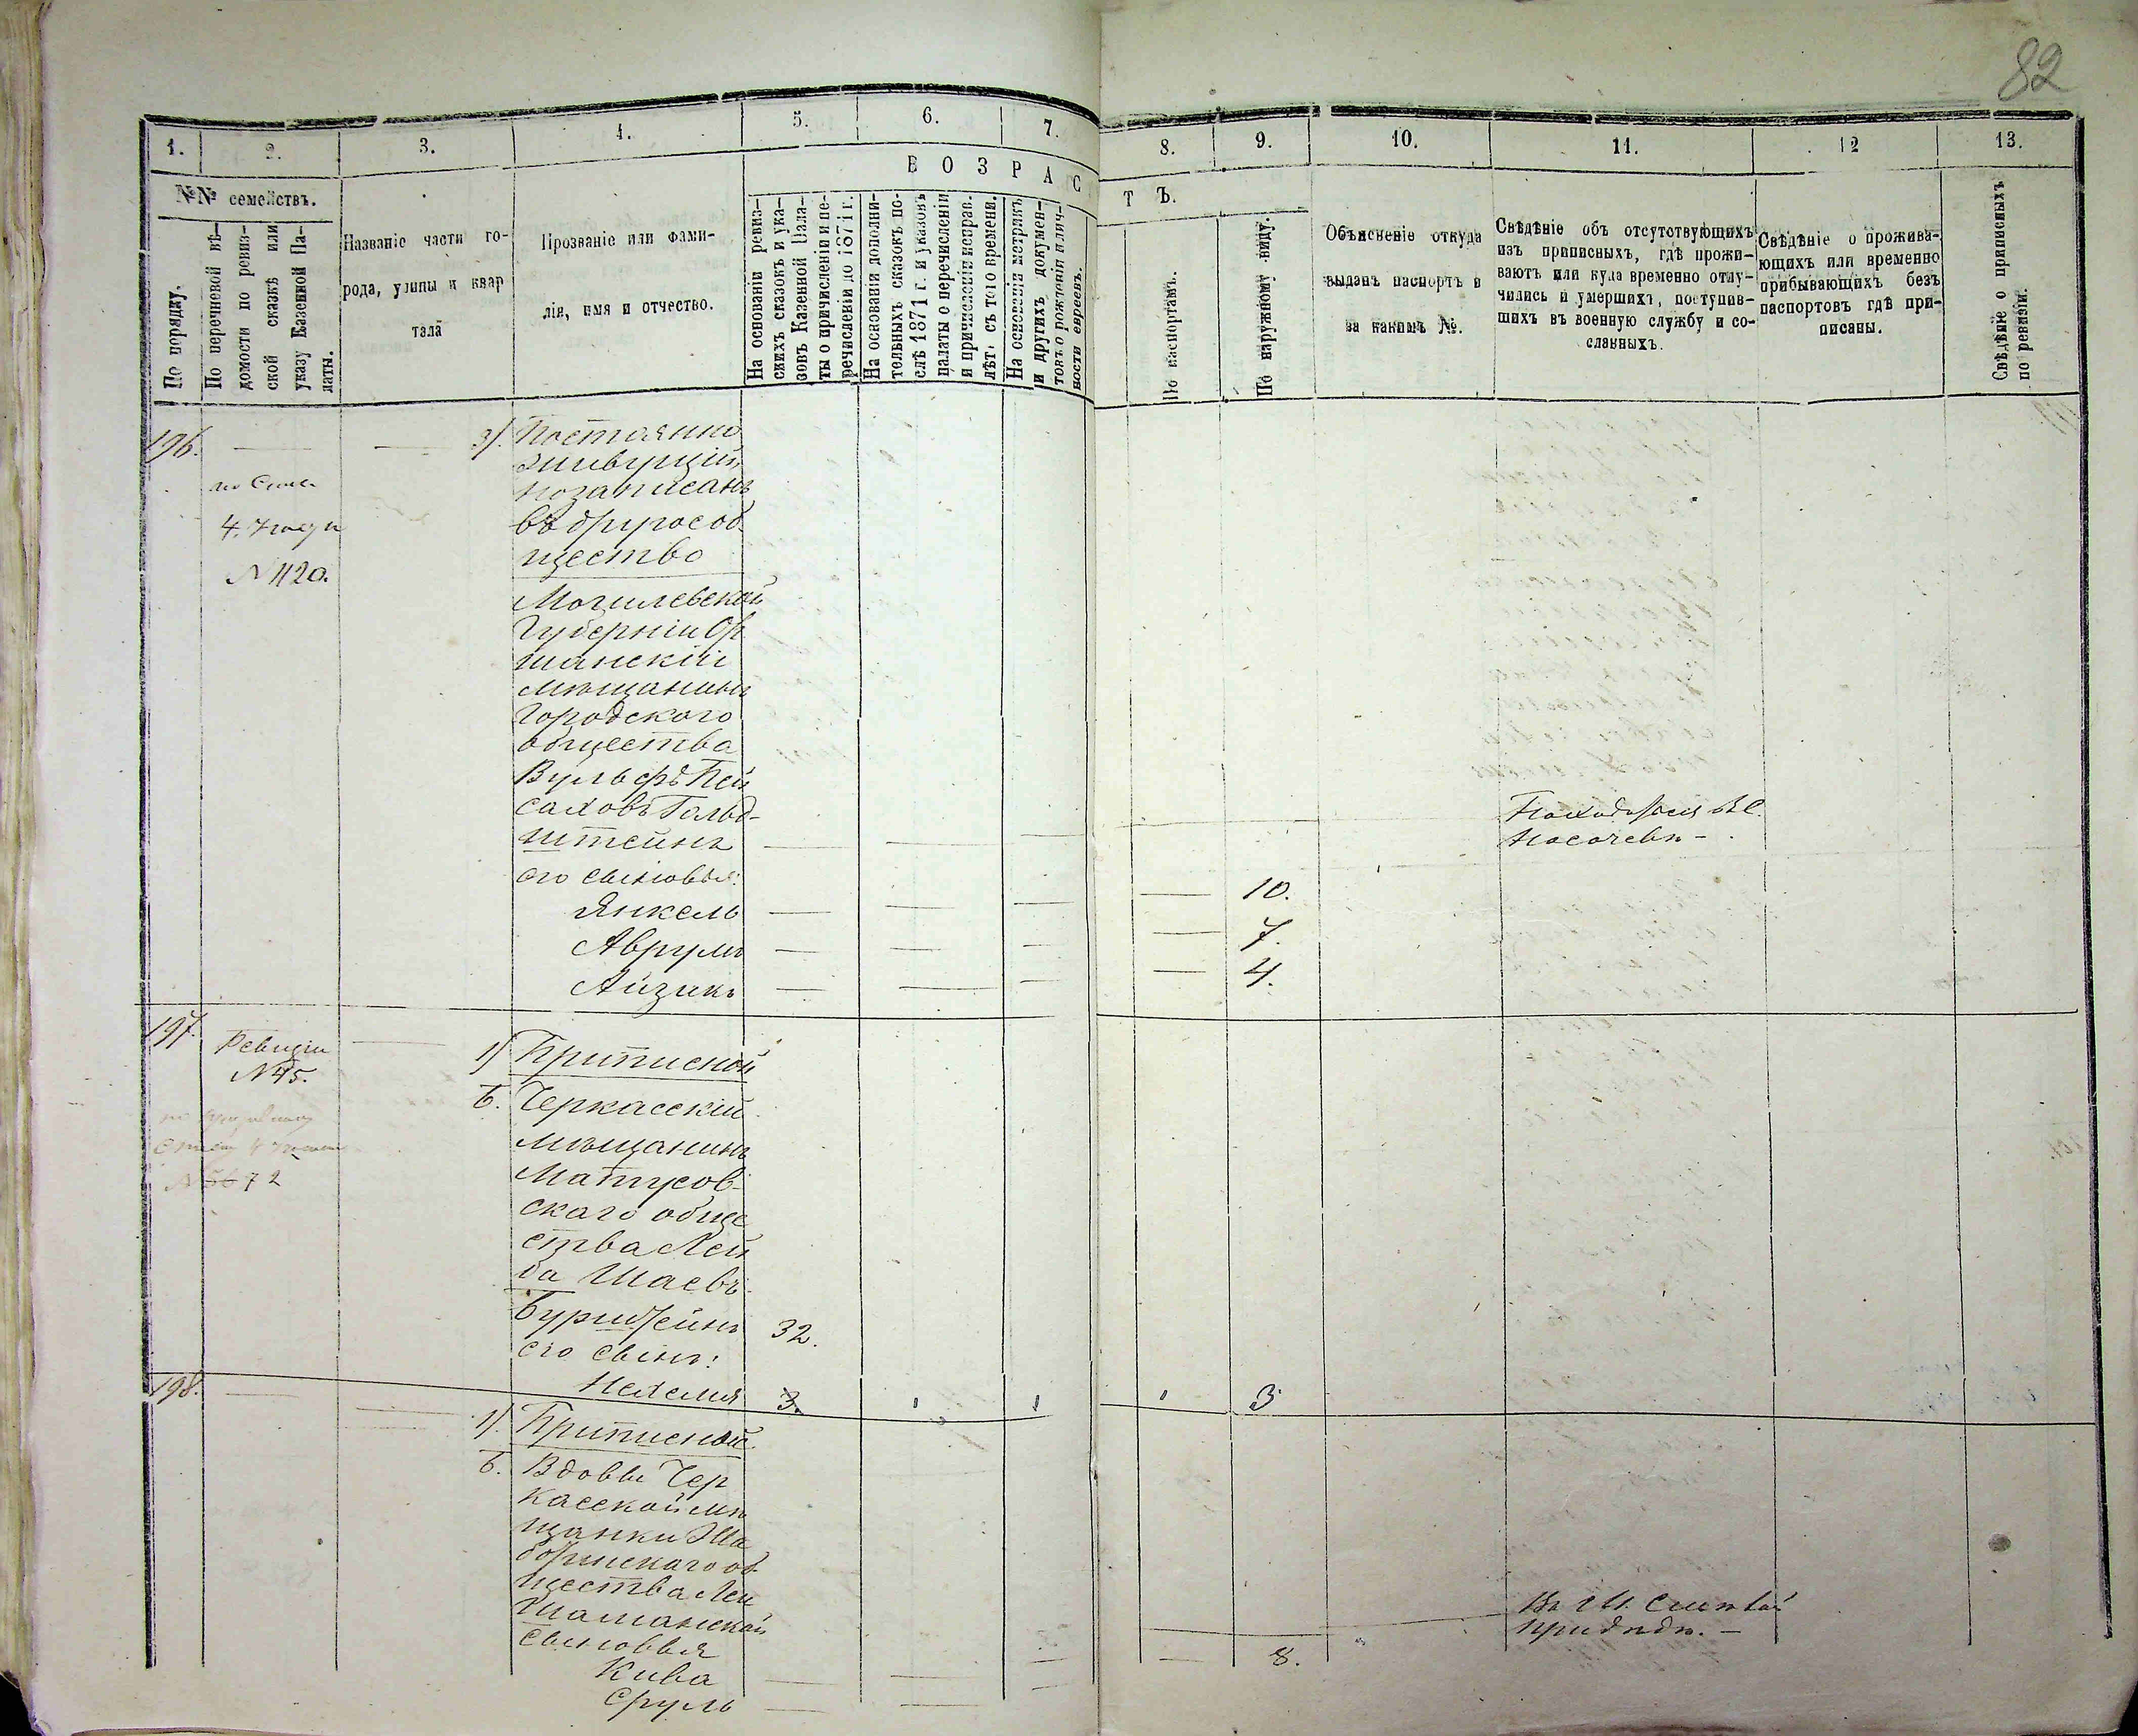 82
1. 2. 3. 4. 5. 6. 7. 8. 9. 10. 11. 12 13.
№№ семействъ.
По порядку.
По перечневой вѣ-
домости по ревиз-
ской сказкѣ или
указу Казенной Па-
латы.
Названіе части го-
рода, улицы и квар
тала
Прозваніе или фами-
лія, имя и отчество.
ВОЗРАСТЪ.
На основаніи ревиз-
скихъ сказокъ и ука-
зовъ Казенной Пала-
ты о причисленіи и пе-
речисленіи до 1871 г.
На основаніи дополни-
тельныхъ сказокъ по-
слѣ 1871 г. и указовъ
палаты о перечисленіи
и причисленіи исправ.
лѣтъ съ того времени.
На основаніи метрикъ
и другихъ докумен-
товъ о рожденіи и лич-
ности евреевъ.
По паспортамъ.
По наружному виду.
Объясненіе откуда
выданъ паспортъ и
за какимъ №.
Свѣдѣніе объ отсутствующихъ
изъ приписныхъ, гдѣ прожи-
ваютъ или куда временно отлу-
чились и умершихъ, поступив-
шихъ въ военную службу и со-
сланныхъ.
Свѣдѣніе о прожива-
ющихъ или временно
прибывающихъ безъ
паспортовъ гдѣ при-
писаны.
Свѣдѣніе о приписныхъ
по ревизіи.
196. — — 3). Постоянно
живущій,
незаписанъ
въ другое об
щество
4. 
N 1120.
Могилевской
Губерніи Ор
шанскій
мѣщанинъ
Городского
общества
Вульфъ Пей
саховъ Гольд-
штейнъ — — —
его сыновья:
Янкель — — — — 10.
Аврумъ — — — — 7.
Айзикъ — — — — 4.
197. Ревизіи — 1) Приписной
N 45.
Б. Черкасскій
мѣщанинъ
Матусов-
скаго обще
ства Лей
ба Шаевъ
Бурштейнъ 32.
его сынъ:
Нехемія 3. 3
N 56 72
198. — — 1). Приписной
Б. Вдовы Чер
касской мѣ
щанки Жа
ботинскаго об
щества Леи
Шаманской
сыновья
Кива — — — — 8.
Сруль — — —
Въ М. Смѣлой
при дядѣ. —